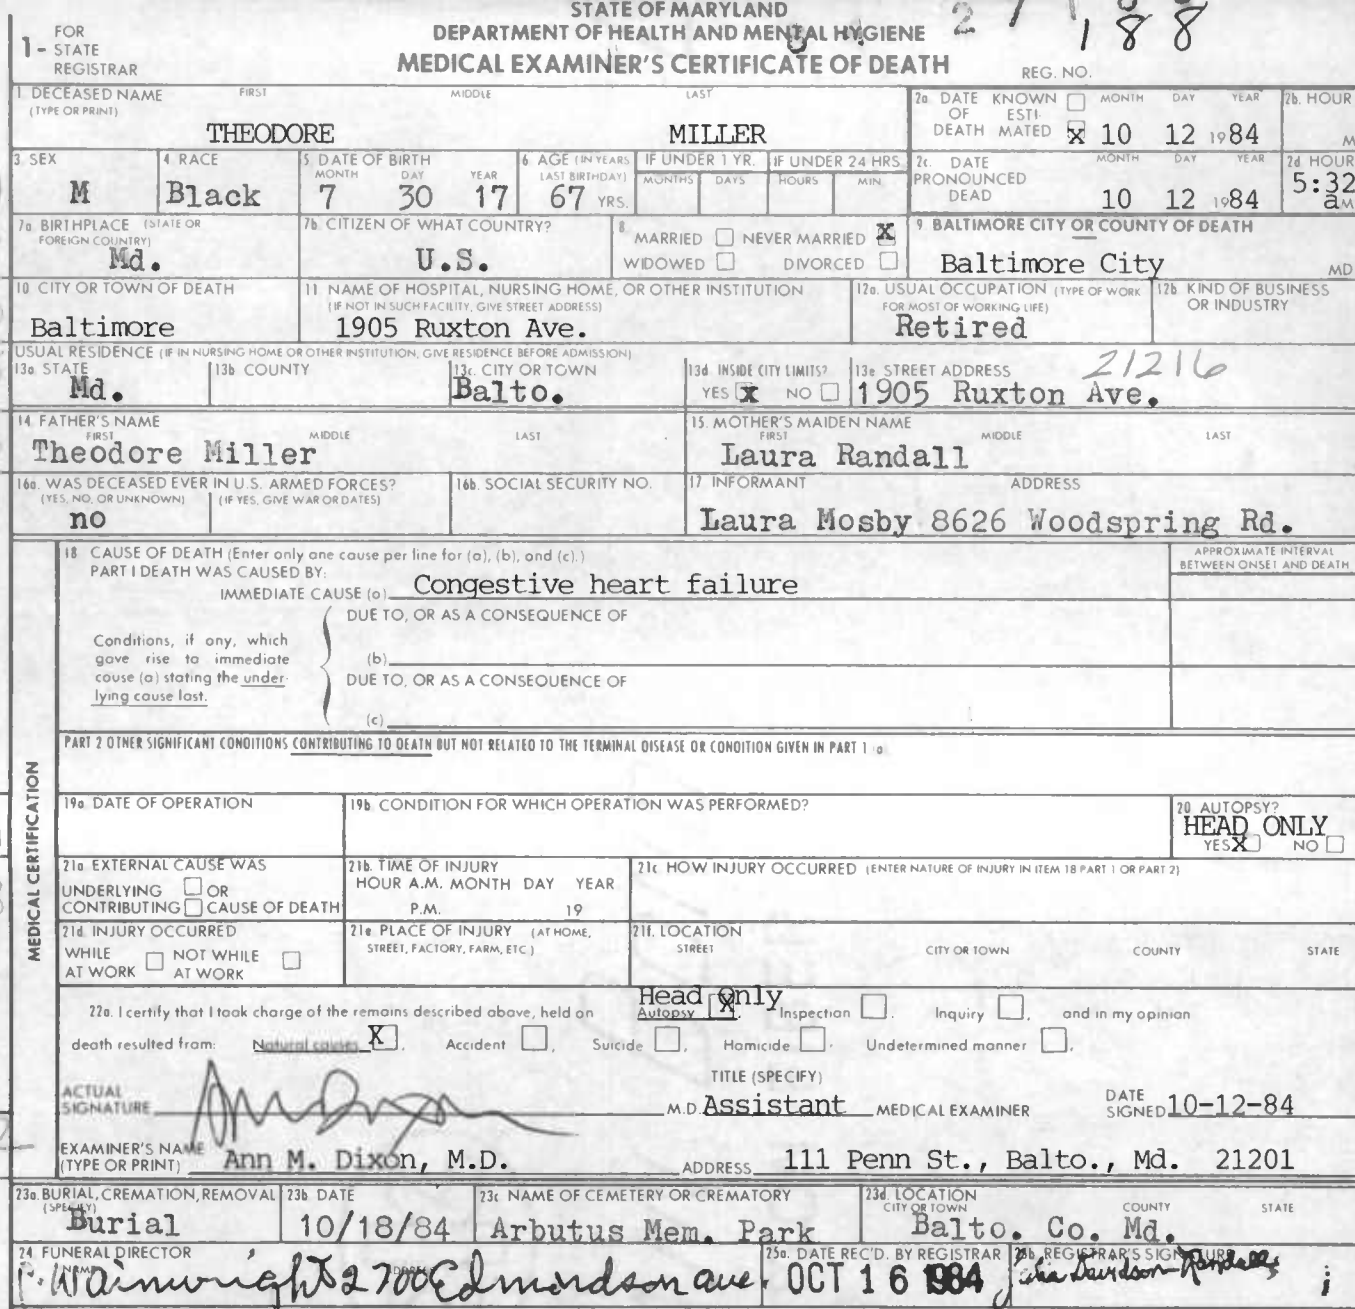 STATE OF MARYLAND
DEPARTMENT OF HEALTH AND MENTAL HYGIENE
MEDICAL EXAMINER'S CERTIFICATE OF DEATH
REG. NO.
1 - FOR STATE REGISTRAR
1. DECEASED NAME (TYPE OR PRINT) FIRST MIDDLE LAST
THEODORE MILLER
2a. DATE OF DEATH KNOWN ESTI-MATED X MONTH DAY YEAR
10 12 1984
2b. HOUR M
3. SEX
M
4. RACE
Black
5. DATE OF BIRTH MONTH DAY YEAR
7 30 17
6. AGE (IN YEARS LAST BIRTHDAY)
67 YRS.
IF UNDER 1 YR. MONTHS DAYS
IF UNDER 24 HRS HOURS MIN.
2c. DATE PRONOUNCED DEAD MONTH DAY YEAR
10 12 1984
2d HOUR
5:32 aM
7a BIRTHPLACE (STATE OR FOREIGN COUNTRY)
Md.
7b. CITIZEN OF WHAT COUNTRY?
U.S.
8. MARRIED NEVER MARRIED X
WIDOWED DIVORCED
9 BALTIMORE CITY OR COUNTY OF DEATH
Baltimore City MD
10 CITY OR TOWN OF DEATH
Baltimore
11. NAME OF HOSPITAL, NURSING HOME, OR OTHER INSTITUTION
(IF NOT IN SUCH FACILITY, GIVE STREET ADDRESS)
1905 Ruxton Ave.
12a. USUAL OCCUPATION (TYPE OF WORK FOR MOST OF WORKING LIFE)
Retired
12b. KIND OF BUSINESS OR INDUSTRY
USUAL RESIDENCE (IF IN NURSING HOME OR OTHER INSTITUTION, GIVE RESIDENCE BEFORE ADMISSION)
13a STATE
Md.
13b COUNTY
13c. CITY OR TOWN
Balto.
13d INSIDE CITY LIMITS?
YES X NO
13e STREET ADDRESS 21216
1905 Ruxton Ave.
14. FATHER'S NAME FIRST MIDDLE LAST
Theodore Miller
15. MOTHER'S MAIDEN NAME FIRST MIDDLE LAST
Laura Randall
16a. WAS DECEASED EVER IN U.S. ARMED FORCES?
(YES, NO, OR UNKNOWN) (IF YES, GIVE WAR OR DATES)
no
16b. SOCIAL SECURITY NO.
17 INFORMANT ADDRESS
Laura Mosby 8626 Woodspring Rd.
MEDICAL CERTIFICATION
18 CAUSE OF DEATH (Enter only one cause per line for (a), (b), and (c).)
PART I DEATH WAS CAUSED BY:
IMMEDIATE CAUSE (a) Congestive heart failure
APPROXIMATE INTERVAL BETWEEN ONSET AND DEATH
DUE TO, OR AS A CONSEQUENCE OF
Conditions, if any, which gave rise to immediate cause (a) stating the under-lying cause last.
(b)
DUE TO, OR AS A CONSEQUENCE OF
(c)
PART 2 OTHER SIGNIFICANT CONDITIONS CONTRIBUTING TO DEATH BUT NOT RELATED TO THE TERMINAL DISEASE OR CONDITION GIVEN IN PART 1 a
19a DATE OF OPERATION
19b. CONDITION FOR WHICH OPERATION WAS PERFORMED?
20 AUTOPSY?
HEAD ONLY
YES X NO
21a EXTERNAL CAUSE WAS
UNDERLYING OR
CONTRIBUTING CAUSE OF DEATH
21b. TIME OF INJURY
HOUR A.M. MONTH DAY YEAR
P.M. 19
21c HOW INJURY OCCURRED (ENTER NATURE OF INJURY IN ITEM 18 PART 1 OR PART 2)
21d INJURY OCCURRED
WHILE AT WORK NOT WHILE AT WORK
21e PLACE OF INJURY (AT HOME, STREET, FACTORY, FARM, ETC.)
21f. LOCATION
STREET CITY OR TOWN COUNTY STATE
Head Only
22a. I certify that I took charge of the remains described above, held an Autopsy X. Inspection. Inquiry, and in my opinion
death resulted from: Natural causes X. Accident, Suicide, Homicide. Undetermined manner.
ACTUAL SIGNATURE
TITLE (SPECIFY)
M.D. Assistant MEDICAL EXAMINER
DATE SIGNED 10-12-84
EXAMINER'S NAME (TYPE OR PRINT) Ann M. Dixon, M.D.
ADDRESS 111 Penn St., Balto., Md. 21201
23a. BURIAL, CREMATION, REMOVAL (SPECIFY)
Burial
23b DATE
10/18/84
23c NAME OF CEMETERY OR CREMATORY
Arbutus Mem. Park
23d. LOCATION CITY OR TOWN COUNTY STATE
Balto. Co. Md.
24 FUNERAL DIRECTOR
NAME
Wainwright 2700 Edmondson ave.
25a. DATE REC'D. BY REGISTRAR
OCT 16 1984
25b. REGISTRAR'S SIGNATURE
Davidson-Randall